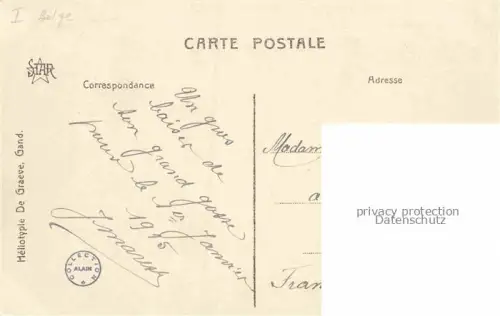 I Belge
CARTE POSTALE
STAR
Correspondance
Adresse
Un gros
baiser de
ton grand gosse
pour le 1er Janvier
1915
Héliotypie De Graeve, Gand.
COLLECTION
ALAIN
Madam
a
Fran
privacy protection
Datenschutz